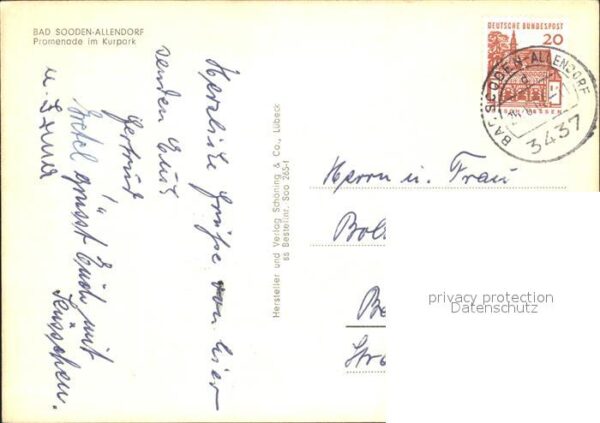 BAD SOODEN-ALLENDORF
Promenade im Kurpark
Herzliche Grüße von hier
senden Euch
Gertrud
u. Erna
Gretel grüsst Euch mit
Küsschen.
Hersteller und Verlag Schöning & Co., Lübeck
ss Bestellnr. Soo 265-1
DEUTSCHE BUNDESPOST
20
BAD SOODEN-ALLENDORF
3437
Herrn u. Frau
privacy protection
Datenschutz